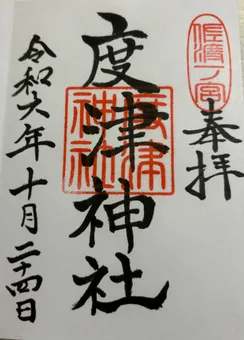 佐渡ノ宮
奉拝
度津神社
度津神社
令和六年十月二十四日